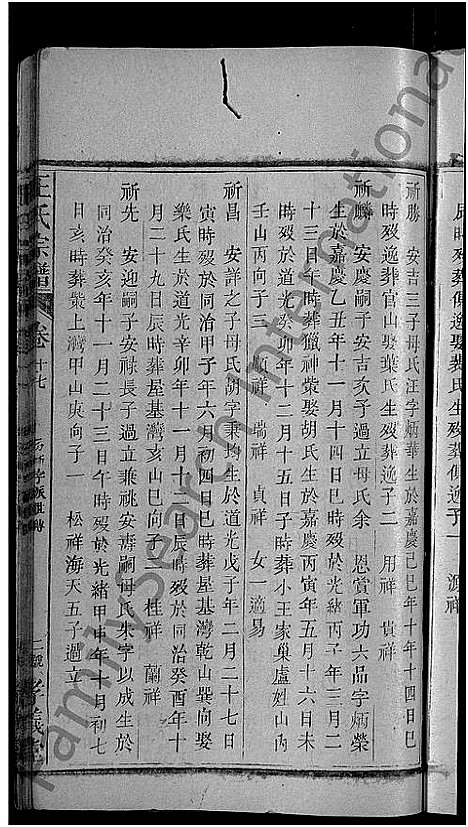 辰時歿葬俱逸娶裴氏生歿葬俱逸子一 源祥
祈勝 安吉三子母氏汪字炳華生於嘉慶己巳年十年十四日巳
時歿逸葬官山娶葉氏生歿葬逸子二 用祥 貴祥
祈麟 安慶嗣子安吉次子過立母氏余 恩賞軍功六品字炳榮
生於嘉慶乙丑年十一月十四日巳時歿於光緒丙子年三月二
十三日午時葬獵神棠娶胡氏生於嘉慶丙寅年五月十六日未
時歿於道光癸卯年十二月十五日子時葬小王家巢盧姓山內
壬山丙向子三 鳳祥 瑞祥 貞祥 女一適易
祈昌 安詳之子母氏胡字秉均生於道光戊子年二月二十七日
寅時歿於同治甲子年六月初四日巳時葬屋基灣乾山巽向娶
樂氏生於道光辛卯年十一月十二日辰時歿於同治癸酉年十
月二十九日辰時葬屋基灣亥山巳向子二 桂祥 蘭祥
祈先 安迎嗣子安祿長子過立兼祧安壽嗣母氏朱字以成生於
同治癸亥年十一月二十三日午時歿於光緒甲申年十月初七
日亥時葬棠上灣甲山庚向子一 松祥海天五子過立
王氏宗譜 卷十七
二號 孝義堂
FamilySearch International